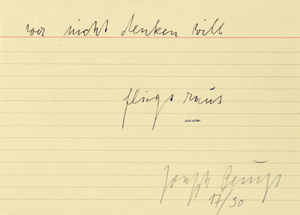 wer nicht denken will
fliegt raus
Joseph Beuys
17/30